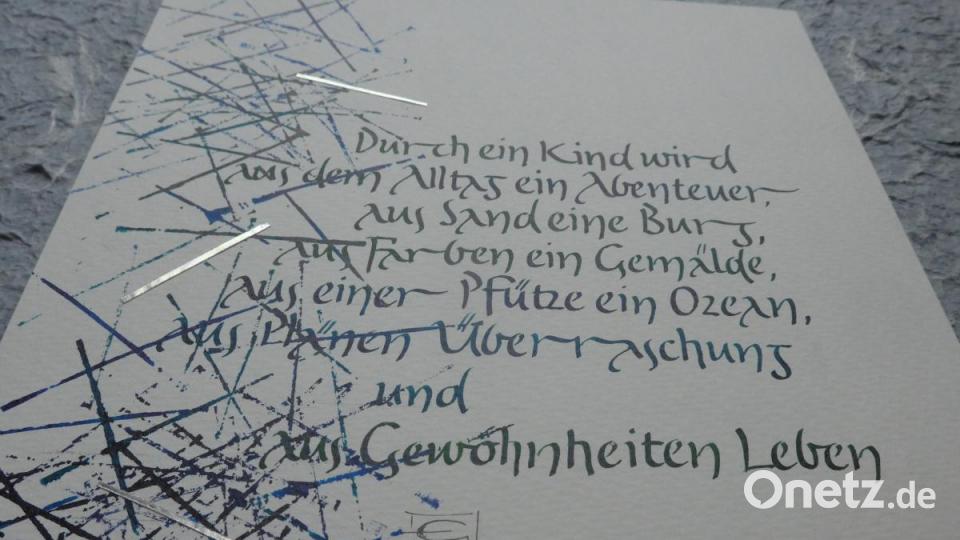 Durch ein Kind wird
aus dem Alltag ein Abenteuer,
aus Sand eine Burg,
aus Farben ein Gemälde,
aus einer Pfütze ein Ozean,
aus Plänen Überraschung
und
aus Gewohnheiten Leben
C
Onetz.de